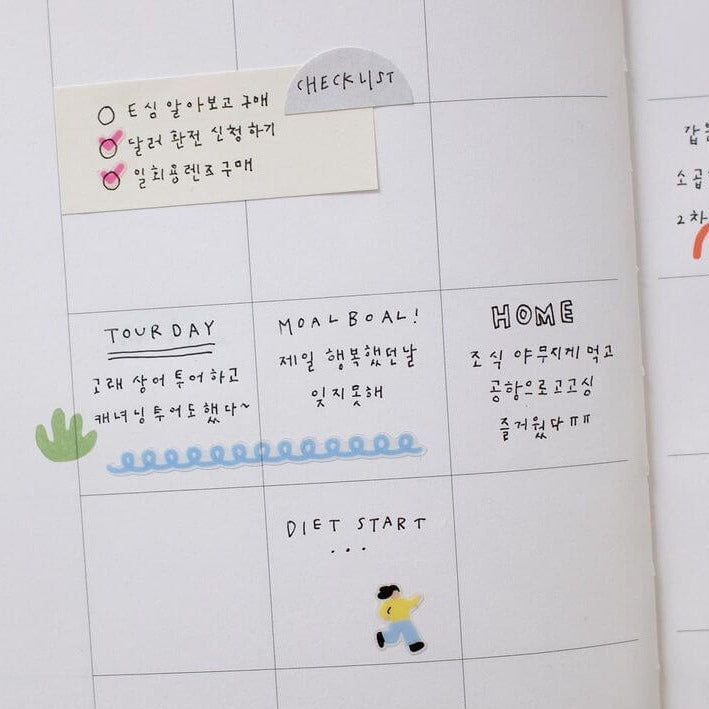 CHECKLIST
E심 알아보고 구매
달러 환전 신청하기
일회용렌즈 구매
TOUR DAY
고래 상어 투어하고
캐녀닝 투어도 했다~
MOALBOAL!
제일 행복했던 날
잊지못해
HOME
조식 야무지게 먹고
공항으로 고고싱
즐거웠다 ㅠㅠ
DIET START
...
2차